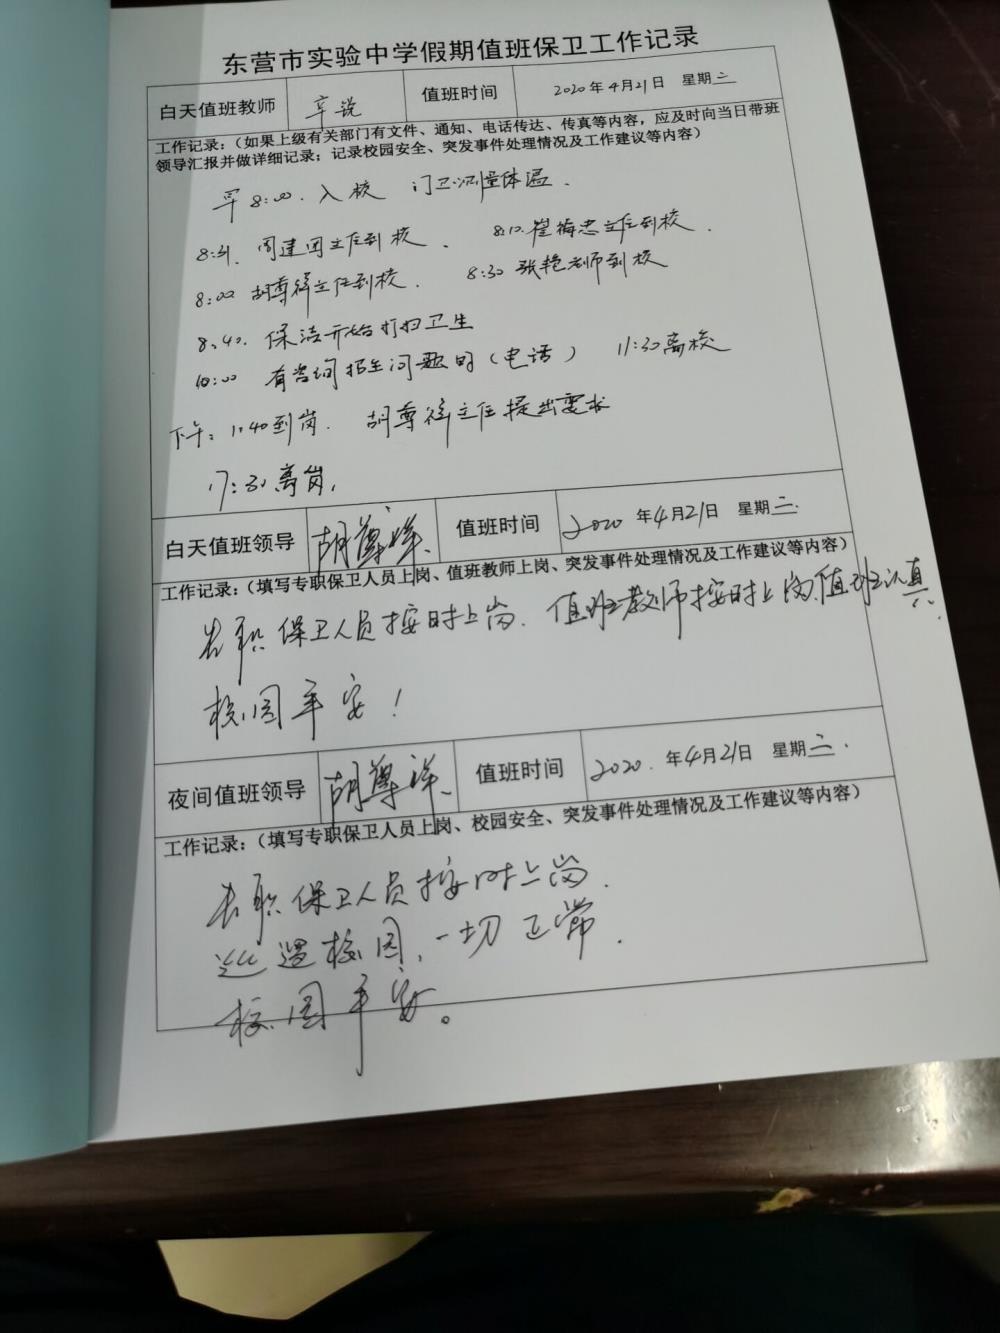 东营市实验中学假期值班保卫工作记录
白天值班教师 辛说 值班时间 2020年4月21日 星期二
工作记录：（如果上级有关部门有文件、通知、电话传达、传真等内容，应及时向当日带班
领导汇报并做详细记录；记录校园安全、突发事件处理情况及工作建议等内容）
早8:00.入校 门卫测量体温.
周建国主任到校. 8:10.崔梅忠主任到校.
8:00 胡尊祥主任到校. 8:30 张艳老师到校
8:40. 保洁开始打扫卫生
10:00 有咨询招生问题的（电话） 11:30离校
下午: 1:40到岗. 胡尊祥主任提出要求
17:30离岗.
白天值班领导 胡尊祥 值班时间 2020年4月21日 星期二.
工作记录：（填写专职保卫人员上岗、值班教师上岗、突发事件处理情况及工作建议等内容）
专职保卫人员按时上岗.值班教师按时上岗.值班认真.
校园平安!
夜间值班领导 胡尊祥 值班时间 2020.年4月21日 星期二.
工作记录：（填写专职保卫人员上岗、校园安全、突发事件处理情况及工作建议等内容）
专职保卫人员按时上岗.
巡逻校园,一切正常.
校园平安。